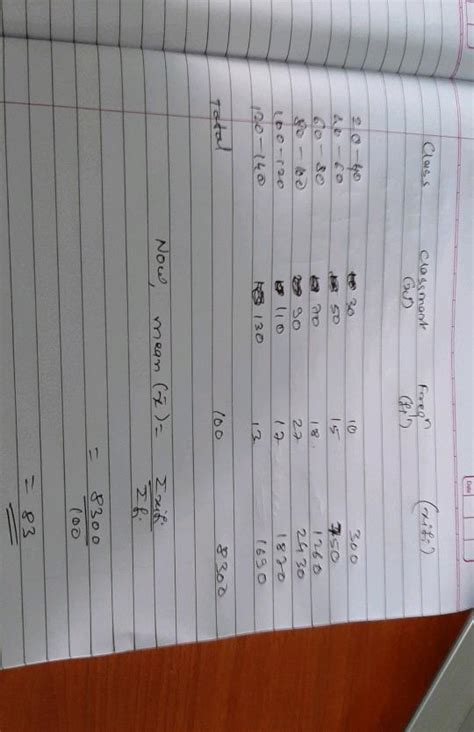 Class Classmark (xi) Freqn (fi) (xifi)
20-40 30 10 300
40-60 50 15 750
60-80 70 18 1260
80-100 90 27 2430
100-120 110 17 1870
120-140 130 13 1690
Total 100 8300
Now, mean (x̄) = Σxifi / Σfi
= 8300 / 100
= 83